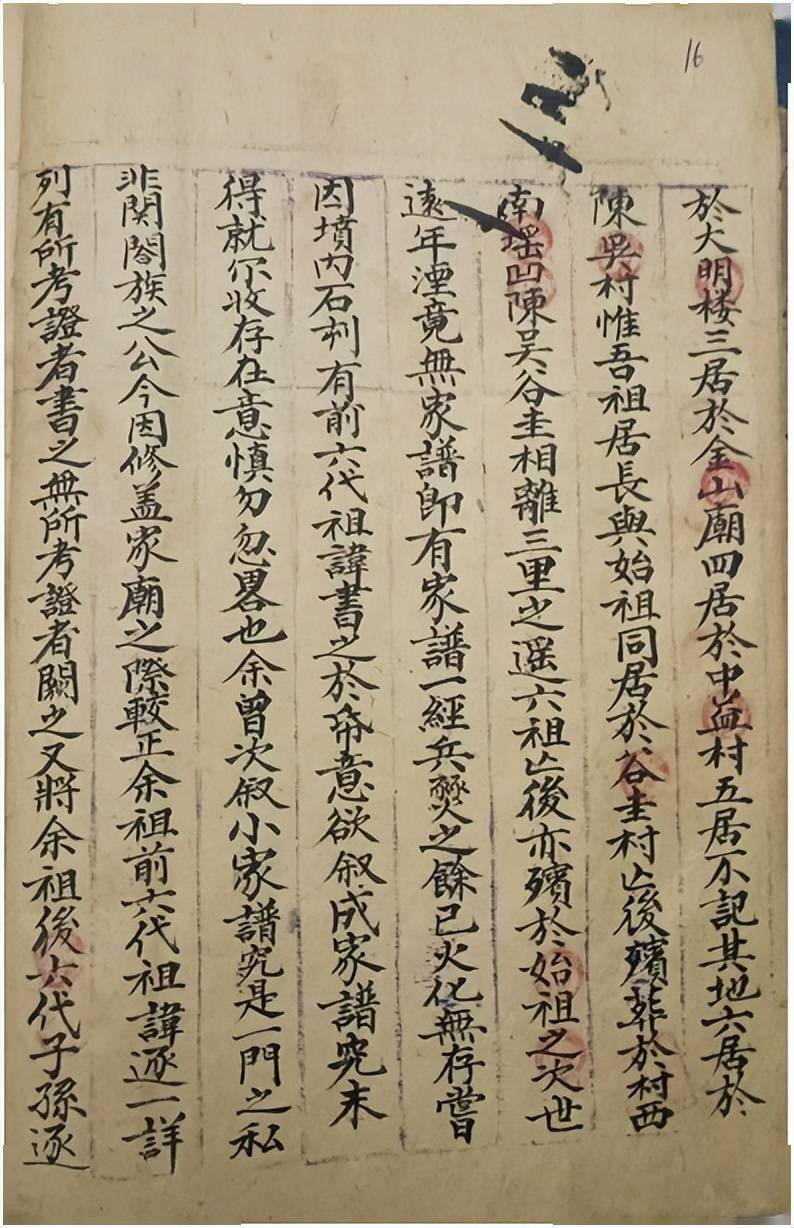 16
於大明楼三居於金山廟四居於中益村五居不記其地六居於
陳吳村惟吾祖居長與始祖同居於谷圭村亡後殯葬於村西
南瑶凹陳吳谷圭相離三里之遥六祖亡後亦殯於始祖之次世
遠年湮竟無家譜即有家譜一經兵燹之餘已火化無存嘗
因墳內石刋有前六代祖諱書之於帋意欲叙成家譜究未
得就尔收存在意慎勿忽畧也余曾次叙小家譜究是一門之私
非関閤族之公今因修盖家廟之際較正余祖前六代祖諱逐一詳
列有所考證者書之無所考證者闕之又將余祖後六代子孫逐